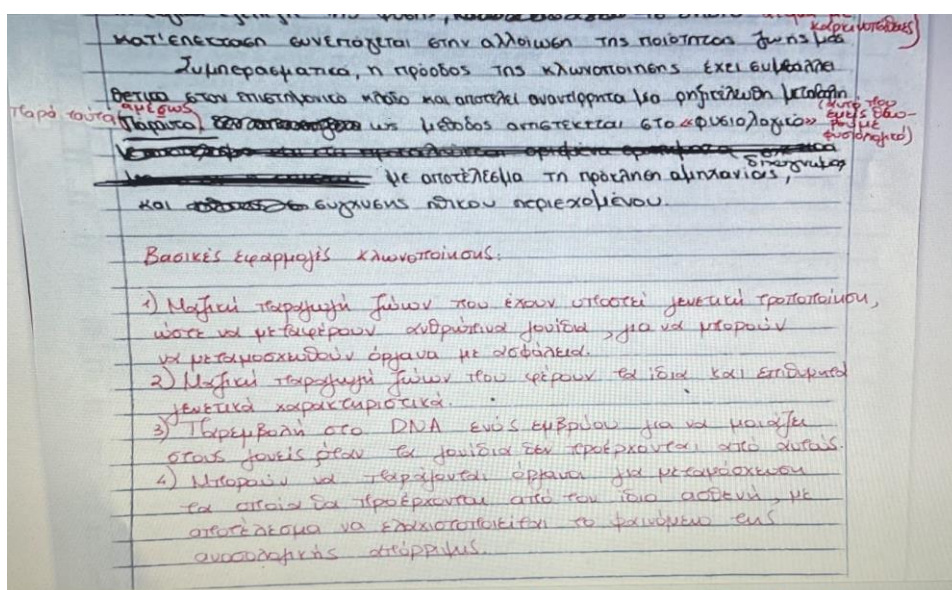 καρκινοπάθειες)
κατ' επέκταση συνεπάγεται στην αλλοίωση της ποιότητας ζωής μας
Συμπερασματικά, η πρόοδος της κλωνοποίησης έχει συμβάλλει
θετικά στον επιστημονικό κλάδο και αποτελεί αναντίρρητα μια ρηξικέλευθη μεταβολή.
Παρά ταύτα αμέσως (αυτό που
ως μέθοδος αντιστέκεται στο «φυσιολογικό» εμείς θεω-
ρούμε
φυσιολογικό)
με αποτέλεσμα τη πρόκληση αμηχανίας,
και συγχυσης ηθικου περιεχομένου.
Βασικές εφαρμογές κλωνοποίησης:
1) Μαζική παραγωγή ζώων που έχουν υποστεί γενετική τροποποίηση,
ώστε να μεταφέρουν ανθρώπινα γονίδια, για να μπορούν
να μεταμοσχευθούν όργανα με ασφάλεια.
2) Μαζική παραγωγή ζώων που φέρουν τα ίδια και επιθυμητά
γενετικά χαρακτηριστικά.
3) Παρεμβολή στο DNA ενός εμβρύου για να μοιάζει
στους γονείς όταν τα γονίδια δεν προέρχονται από αυτούς.
4) Μπορούν να παράγονται όργανα για μεταμόσχευση
τα οποία θα προέρχονται από τον ίδιο ασθενή, με
αποτέλεσμα να ελαχιστοποιείται το φαινόμενο της
ανοσολογικής απόρριψης.